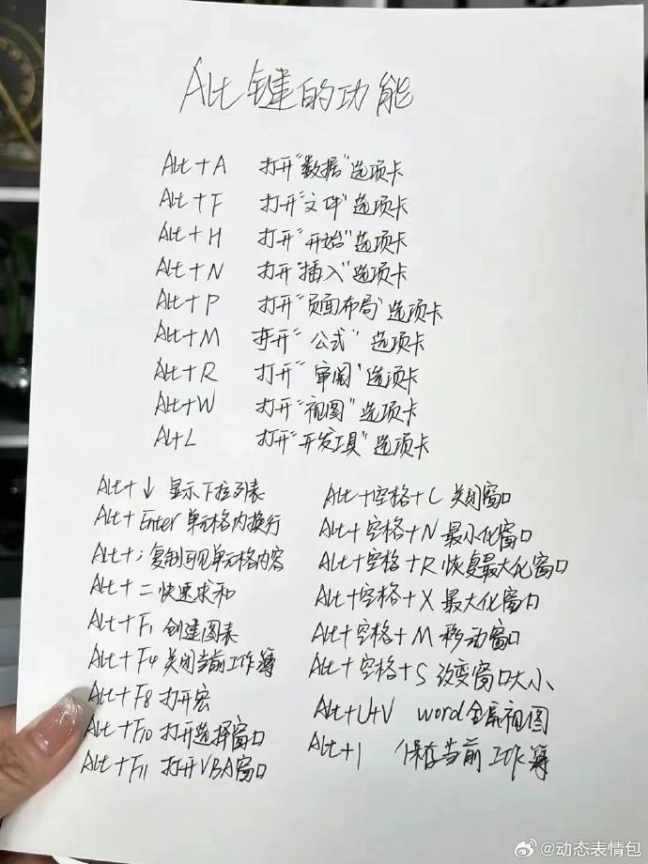 Alt键的功能
Alt+A 打开"数据"选项卡
Alt+F 打开"文件"选项卡
Alt+H 打开"开始"选项卡
Alt+N 打开"插入"选项卡
Alt+P 打开"页面布局"选项卡
Alt+M 打开"公式"选项卡
Alt+R 打开"审阅"选项卡
Alt+W 打开"视图"选项卡
Alt+L 打开"开发工具"选项卡
Alt+↓ 显示下拉列表
Alt+Enter 单元格内换行
Alt+; 复制可见单元格内容
Alt+= 快速求和
Alt+F1 创建图表
Alt+F4 关闭当前工作簿
Alt+F8 打开宏
Alt+F10 打开选择窗口
Alt+F11 打开VBA窗口
Alt+空格+C 关闭窗口
Alt+空格+N 最小化窗口
Alt+空格+R 恢复最大化窗口
Alt+空格+X 最大化窗口
Alt+空格+M 移动窗口
Alt+空格+S 改变窗口大小
Alt+U+V word全屏视图
Alt+1 保存当前工作簿
@动态表情包